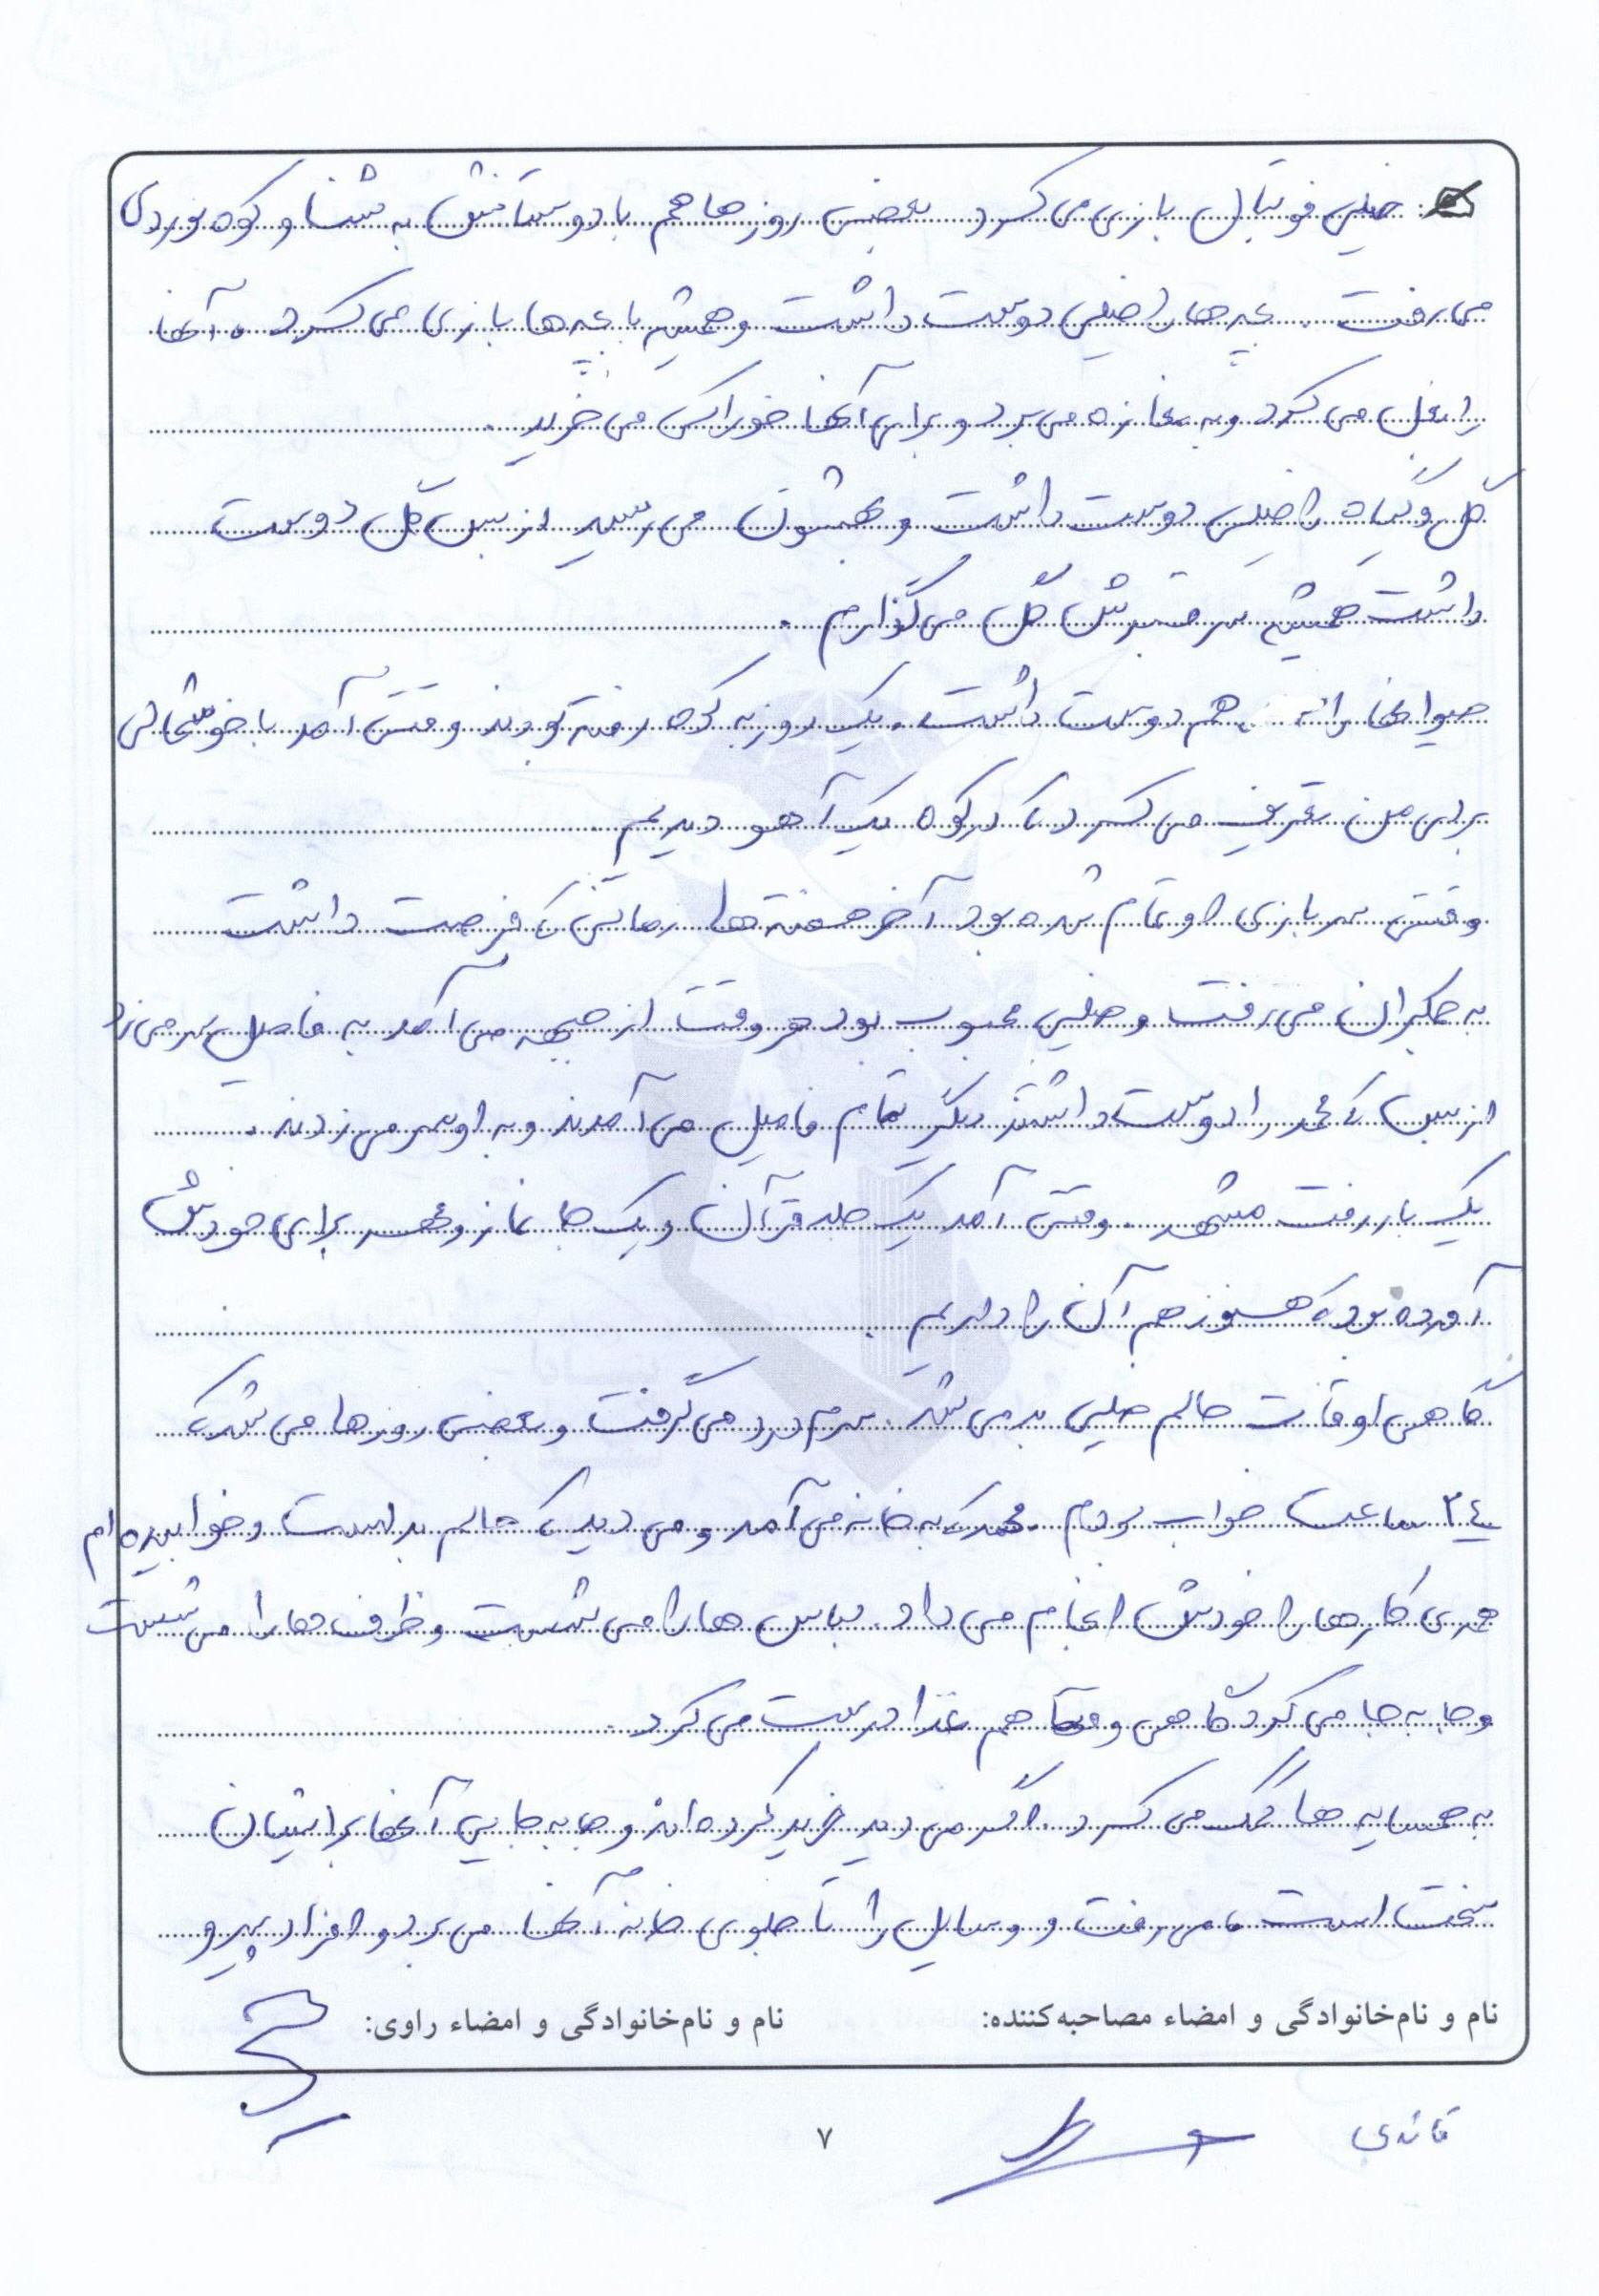 خیلی فوتبال بازی می کرد بعضی روزها هم با دوستانش به شنا و کوه نوردی
می رفت . بچه ها را خیلی دوست داشت و همیشه با بچه ها بازی می کرد ، آنها
را بغل می کرد و به مغازه می برد و برای آنها خوراکی می خرید .
گل و گیاه را خیلی دوست داشت و بهشون می رسید از بس گل دوست
داشت همیشه سر قبرش گل می گذارم .
حیوانها را هم دوست داشت . یک روز به کوه رفته بودند وقتی آمد با خوشحالی
برای من تعریف می کرد که در کوه یک آهو دیدیم
وقتی سربازی او تمام شده بود آخر هفته ها زمانی که فرصت داشت
به جمکران می رفت و خیلی محبوب بود هر وقت از جبهه می آمد به فامیل سر می زد
از بس که محمد را دوست داشتند دیگر تمام فامیل می آمدند و به او سر می زدند .
یک بار رفت مشهد . وقتی آمد یک جلد قرآن و یک جانماز و مهر برای خودش
آورده بود که هنوز هم آن را داریم .
گاهی اوقات حالم خیلی بد می شد . سرم درد می گرفت و بعضی روزها می شد که
٢٤ ساعت خواب بودم . محمد که به خانه می آمد و می دید که حالم بد است و خوابیده ام
همه ی کارها را خودش انجام می داد . لباس ها را می شست و ظرف ها را می شست
و جا به جا می کرد گاهی وقتا هم غذا درست می کرد .
به همسایه ها کمک می کرد . اگر می دید خرید کرده اند و جا به جایی آنها برایشان
سخت است ، می رفت و وسایل را تا جلوی خانه آنها می برد و افراد پیر و
نام و نام‌خانوادگی و امضاء مصاحبه‌کننده: نام و نام‌خانوادگی و امضاء راوی:
قائدی
٧